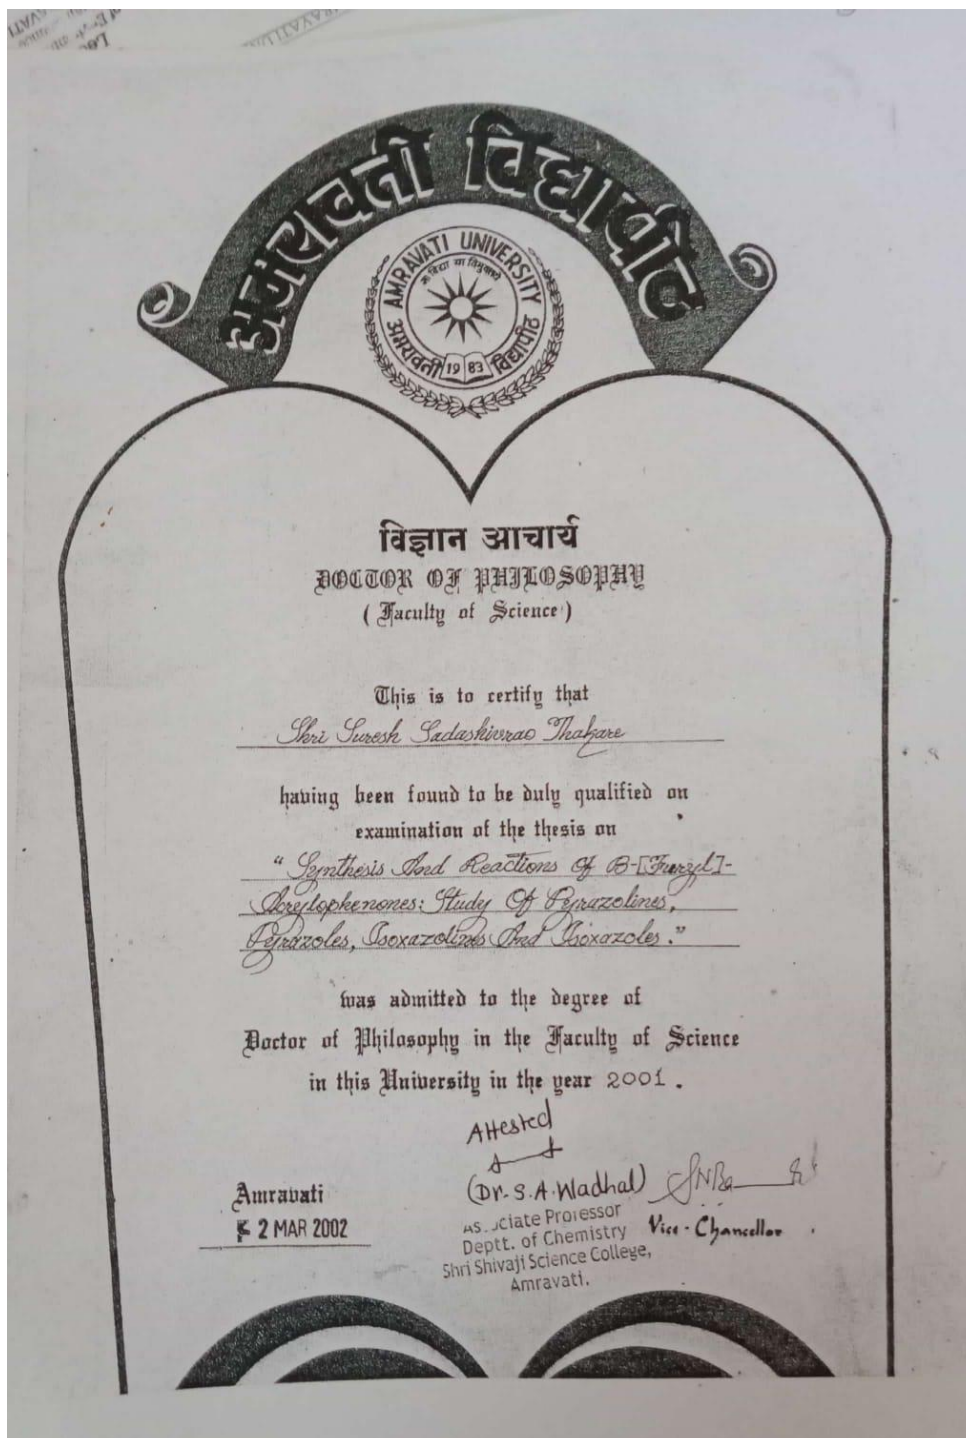 अमरावती विद्यापीठ
AMRAVATI UNIVERSITY
अमरावती विद्यापीठ
19 83
विज्ञान आचार्य
DOCTOR OF PHILOSOPHY
( Faculty of Science )
This is to certify that
Shri Suresh Sadashivrao Thakare
having been found to be duly qualified on
examination of the thesis on
" Synthesis And Reactions Of B-[Furyl]-
Acrylophenones: Study Of Pyrazolines,
Pyrazoles, Isoxazolines And Isoxazoles."
was admitted to the degree of
Doctor of Philosophy in the Faculty of Science
in this University in the year 2001 .
Attested
Amravati
2 MAR 2002
(Dr. S. A. Wadhal)
Associate Professor
Deptt. of Chemistry
Shri Shivaji Science College,
Amravati.
Vice - Chancellor